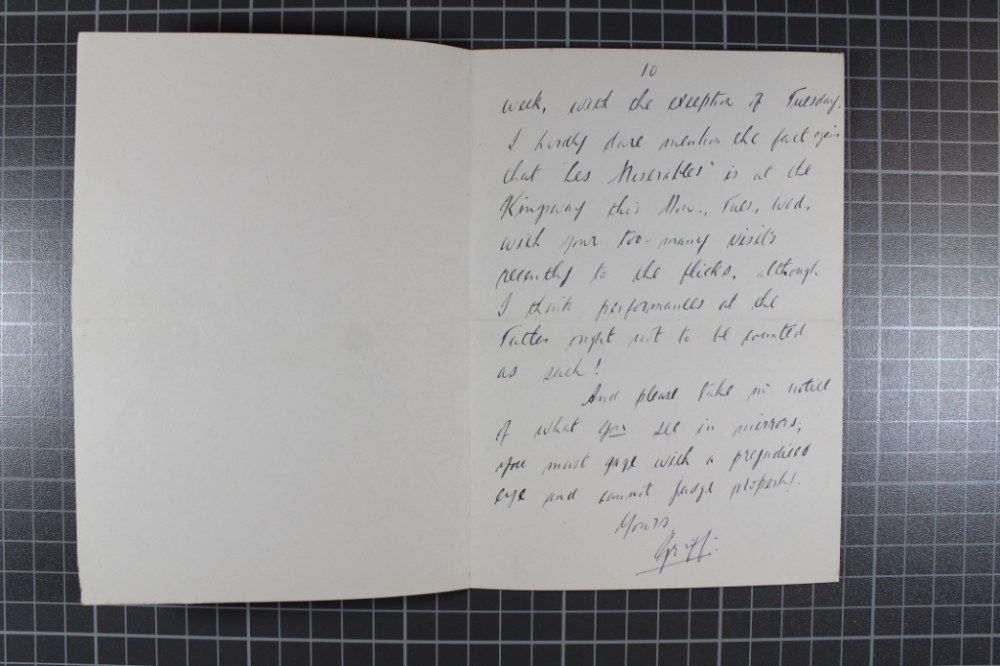 10
week, with the exception of Tuesday.
I hardly dare mention the fact again
that "Les Miserables" is at the
Kingsway this Mon., Tues., Wed.
with your too-many visits
recently to the flicks, although
I think performances at the
Tatler ought not to be counted
as such!
And please take no notice
of what you see in mirrors;
you must gaze with a prejudiced
eye and cannot judge properly.
Yours
Griff.